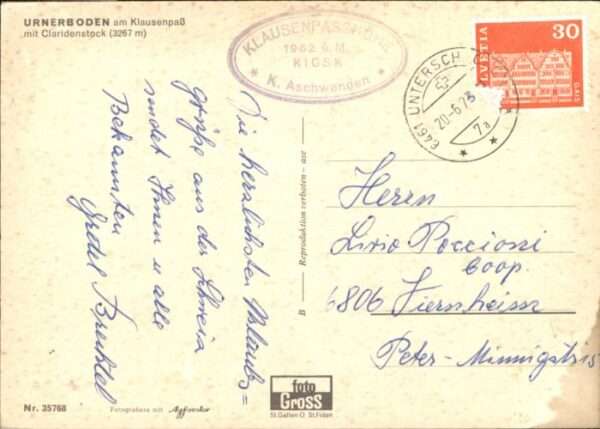 URNERBODEN am Klausenpaß
mit Claridenstock (3267 m)
KLAUSENPASSHÖHE
1952 ü. M.
KIOSK
* K. Aschwanden *
6461 UNTERSCH
20-6.73
7a
30
HELVETIA
GAIS
Die herzlichsten Urlaubs=
grüße aus der Schweiz
sendet Ihnen u alle
Bekannten
Gretel Brechtel
B — Reproduktion verboten - ase —
Herrn
Livio Poccioni
Coop.
6806 Viernheim
Peter-Minnigstr
Nr. 35768
Fotografiera mit
foto
Gross
St.Gallen O St.Fiden